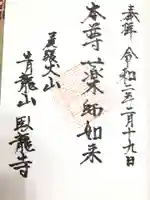 奉拝 令和二年二月十九日
本尊 薬師如来
尾張六山
青龍山 臥龍寺